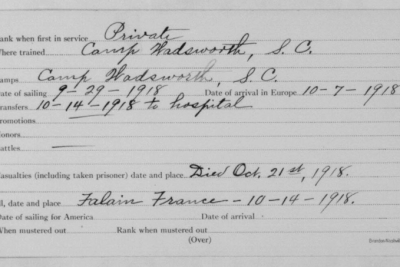 Rank when first in service Private
Where trained Camp Wadsworth, S. C.
amps Camp Wadsworth, S. C.
Date of sailing 9-29-1918 Date of arrival in Europe 10-7-1918
Transfers 10-14-1918 to hospital
Promotions
Honors
Battles —
Casualties (including taken prisoner) date and place Died Oct. 21st, 1918.
d, date and place Falain France - 10-14-1918.
Date of sailing for America Date of arrival
When mustered out Rank when mustered out
(Over)